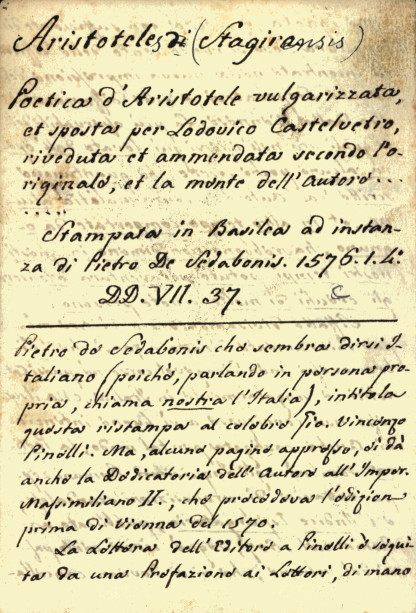 Aristoteles (Stagirensis)
Poetica d'Aristotele vulgarizzata,
et sposta per Lodovico Castelvetro,
riveduta et ammendata secondo l'o-
riginale, et la mente dell'autore ...
.....
Stampata in Basilea ad instan-
za di Pietro De Sedabonis. 1576. 1. 4.°
DD. VII. 37. C
Pietro de Sedabonis che sembra dirsi I-
taliano (poichè, parlando in persona pro-
pria, chiama nostra l'Italia), intitola
questa ristampa al celebre Gio. Vincenzo
Pinelli. Ma, alcune pagine appresso, si dà
anche la Dedicatoria dell'Autore all'Imper.
Massimiliano II., che precedeva l'edizion
prima di Vienna del 1570.
La Lettera dell'Editore a Pinelli è segui-
ta da una Prefazione ai Lettori, di mano